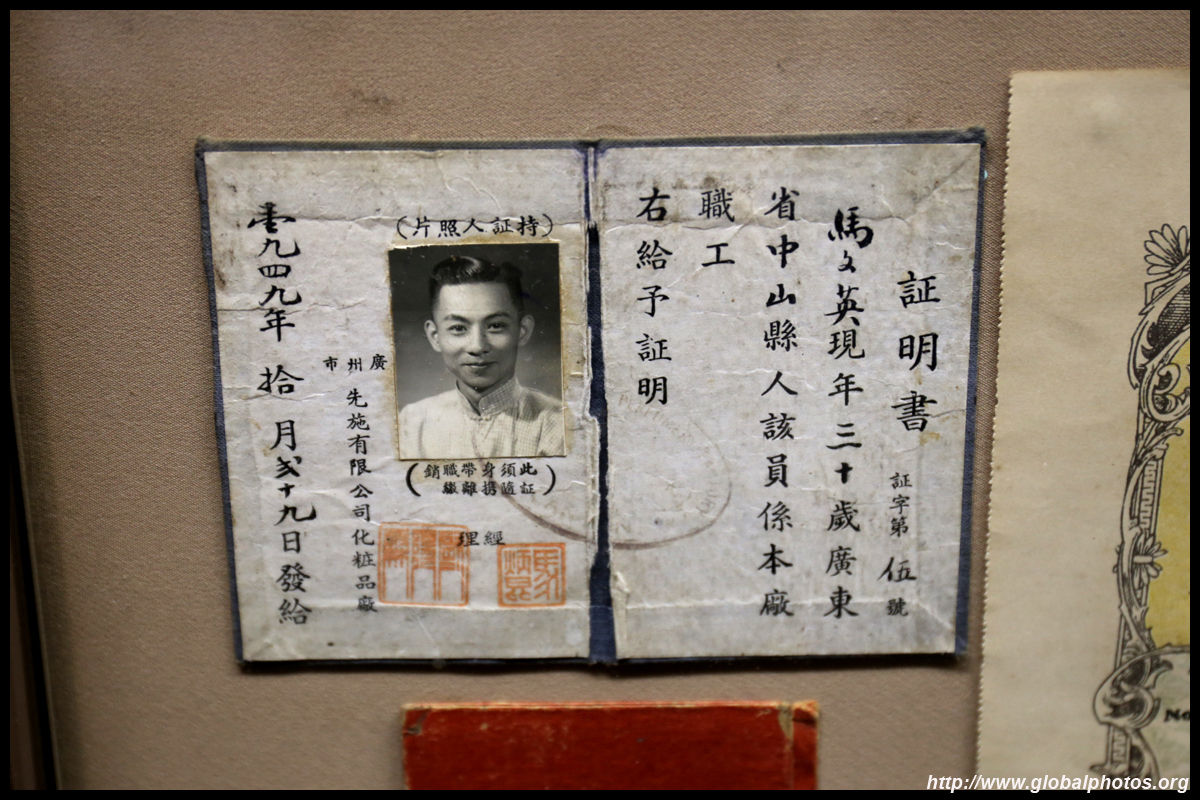 証明書 証字第伍號
馬文英現年三十歲廣東
省中山縣人該員係本廠
職工
右給予証明
(持証人照片)
(此証須隨身携帶離職繳銷)
廣州市
先施有限公司化粧品廠
經理
壹九四九年拾月弍十九日發給
No
http://www.globalphotos.org